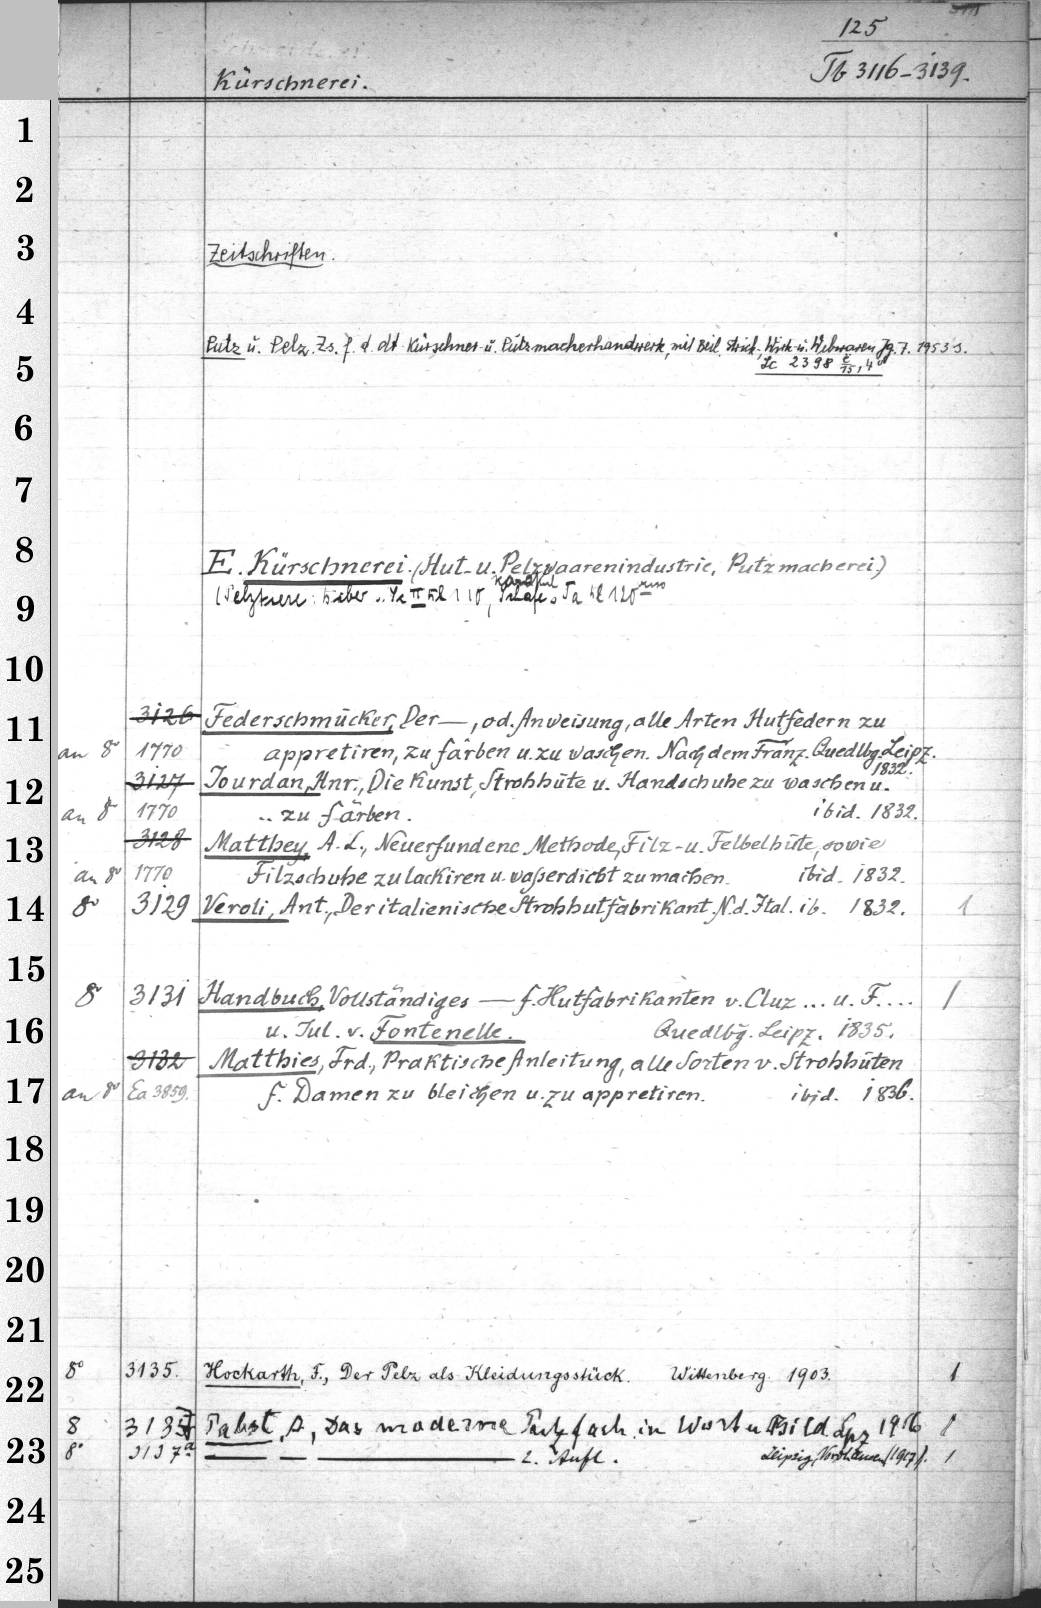 125
Kürschnerei.
Tb 3116-3139.
1
2
3
Zeitschriften.
4
Putz u. Pelz. Zs. f. d. dt. Kürschner- u. Putzmacherhandwerk, mit Beil. Strick-, Wirk- u. Webwaren Jg. 7. 1953 s.
5
2398 4°
6
7
8
E. Kürschnerei. (Hut- u. Pelzwaarenindustrie, Putzmacherei.)
9
10
3126 Federschmücker, Der —, od. Anweisung, alle Arten Hutfedern zu
11
an 8° 1770 appretiren, zu färben u. zu waschen. Nach dem Franz. Quedlbg. Leipz. 1832.
12
3127 Jourdan, Hnr., Die Kunst, Strohhüte u. Handschuhe zu waschen u.
an 8° 1770 .. zu färben. ibid. 1832.
13
3128 Matthey, A. L., Neuerfundene Methode, Filz- u. Felbelhüte, sowie
an 8° 1770 Filzschuhe zu lackiren u. waßerdicht zu machen. ibid. 1832.
14
8° 3129 Veroli, Ant., Der italienische Strohhutfabrikant. N. d. Ital. ib. 1832. 1
15
8° 3131 Handbuch, Vollständiges — f. Hutfabrikanten v. Cluz ... u. F.... 1
16
u. Jul. v. Fontenelle. Quedlbg. Leipz. 1835.
3132 Matthies, Frd., Praktische Anleitung, alle Sorten v. Strohhüten
17
an 8° Ea 3859. f. Damen zu bleichen u. zu appretiren. ibid. 1836.
18
19
20
21
22
8° 3135. Hockarth, F., Der Pelz als Kleidungsstück. Wittenberg. 1903. 1
8 Pabst, A, Das moderne Putzfach in Wort u Bild Lpz 1916 1
23
8° 3137a — — — 2. Aufl. Leipzig, Nordhausen (1917). 1
24
25